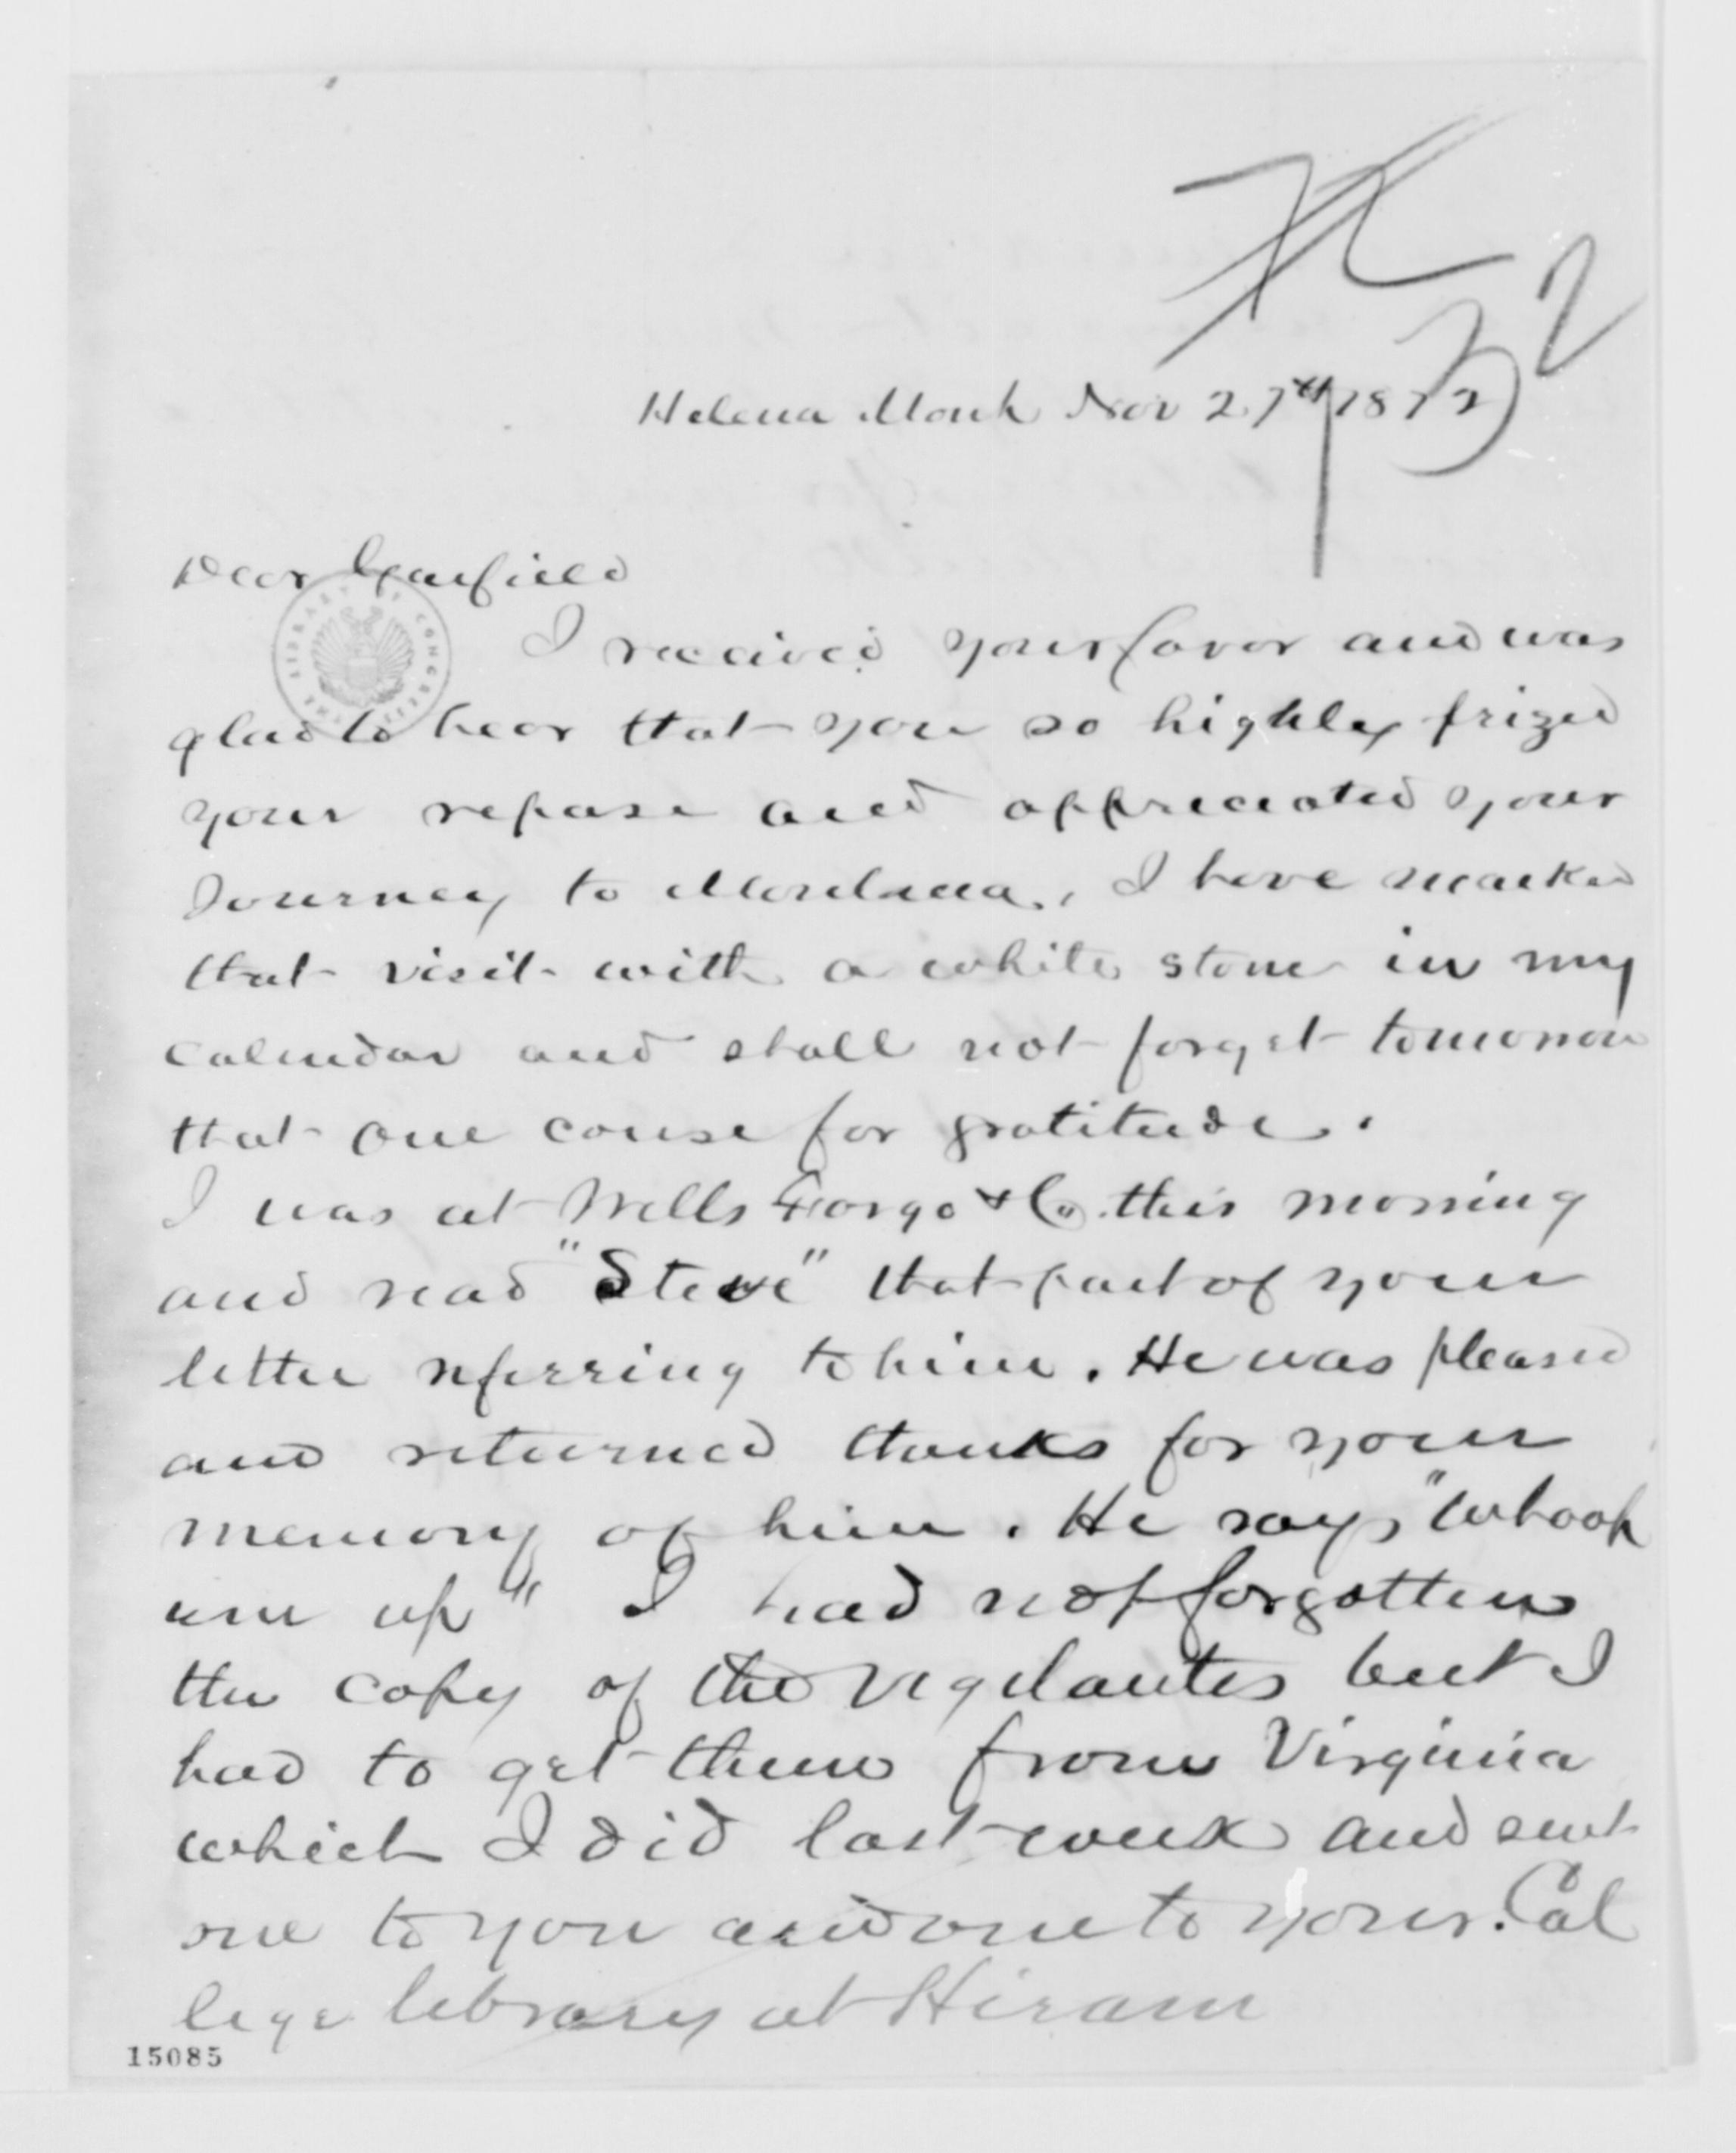 Helena Mont Nov 27th 1872
Dear Garfield
THE LIBRARY OF CONGRESS
I received your favor and was
glad to hear that you so highly prized
your repose and appreciated your
Journey to Montana., I have marked
that visit with a white stone in my
Calendar and shall not forget tomorrow
that one cause for gratitude.
I was at Wells Fargo & Co. this morning
and read "Steve" that part of your
letter referring to him. He was pleased
and returned thanks for your
memory of him. He says "Whoop
um up" I had not forgotten
the copy of the Vigilantes but I
had to get them from Virginia
which I did last week and sent
one to you and one to your Col
lege library at Hiram
15085